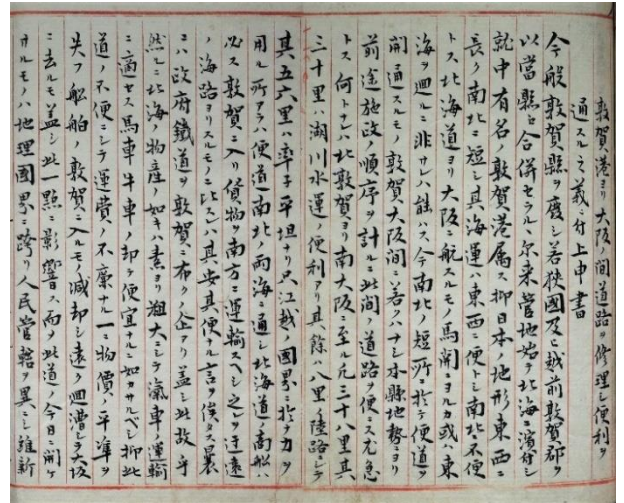 敦賀港ヨリ大阪間道路ヲ修理シ便利ヲ
通スルノ義ニ付上申書
今般敦賀縣ヲ廢シ若狹國及ヒ越前敦賀郡ヲ
以當縣ニ合併セラル尓来管地始テ北海ニ濱付シ
就中有名ノ敦賀港属ス抑日本ノ地形東西ニ
長ク南北ニ短シ其海運ノ東西ニ便トシ南北ニ不便
トス北海道ヨリ大阪ニ航スルモノ馬關ヨルカ或ハ東
海ヲ廻ルニ非サレハ能ハス今南北ノ短所ニ於テ便道ヲ
開通スルモノ敦賀大阪間ニ若クハナシ本縣地勢ニヨリ
前途施政ノ順序ヲ計ルニ此間ノ道路ヲ便スル尤急
トス何トナレハ北敦賀ヨリ南大阪ニ至ル凡三十八里其
三十里ハ湖川水運ノ便利アリ其餘ハ八里ノ陸路ニシテ
其五六里ハ率子平坦ナリ只江越ノ國界ニ於テカヲ
用ル所アラハ便道南北ノ両海ニ通シ北海道ノ商船ハ
必ス敦賀ニ入リ貨物ヲ南方ニ運輸スヘシ之ヲ迂遠
ノ海路ヨリスルモノニ比スレハ其安其便ナル言ヲ俟タス曩
ニハ政府鐵道ヲ敦賀ニ布クノ企アリ蓋シ此故乎
然ルニ北海ノ物産ノ如キハ素ヨリ粗大ニシテ瀛車ノ運輸
ニ適セス馬車牛車ノ却テ便宜ナルニ如カサルベシ抑此
道ノ不便ニシテ運費ノ不廉ナル一ニ物價ノ平準ヲ
失フ船舶ノ敦賀ニ入ルモノ減却シ遠ク廻漕シテ大坂
ニ去ルモ蓋シ此一點ニ影響ス而ノ此道ノ今日ニ開ケ
サルモノハ地理國界ニ跨リ人民管轄ヲ異ニシ維新